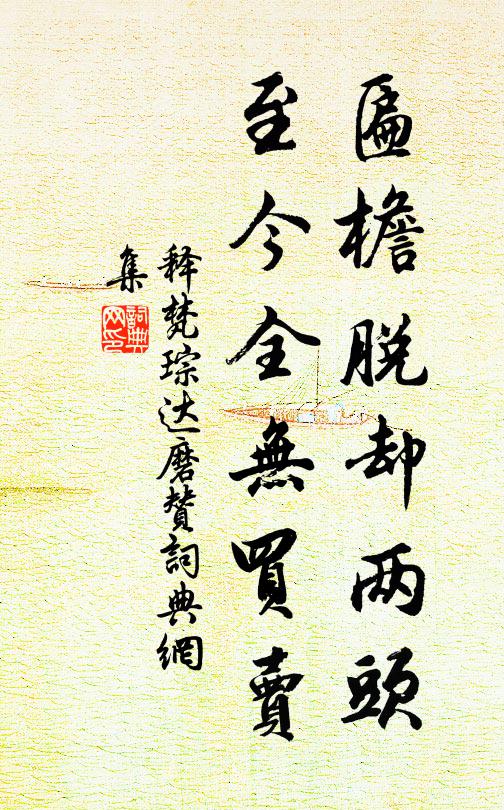 匾檐脱却两頭
至今全無買賣
释梵琮达磨赞詞典網
集
詞典网印